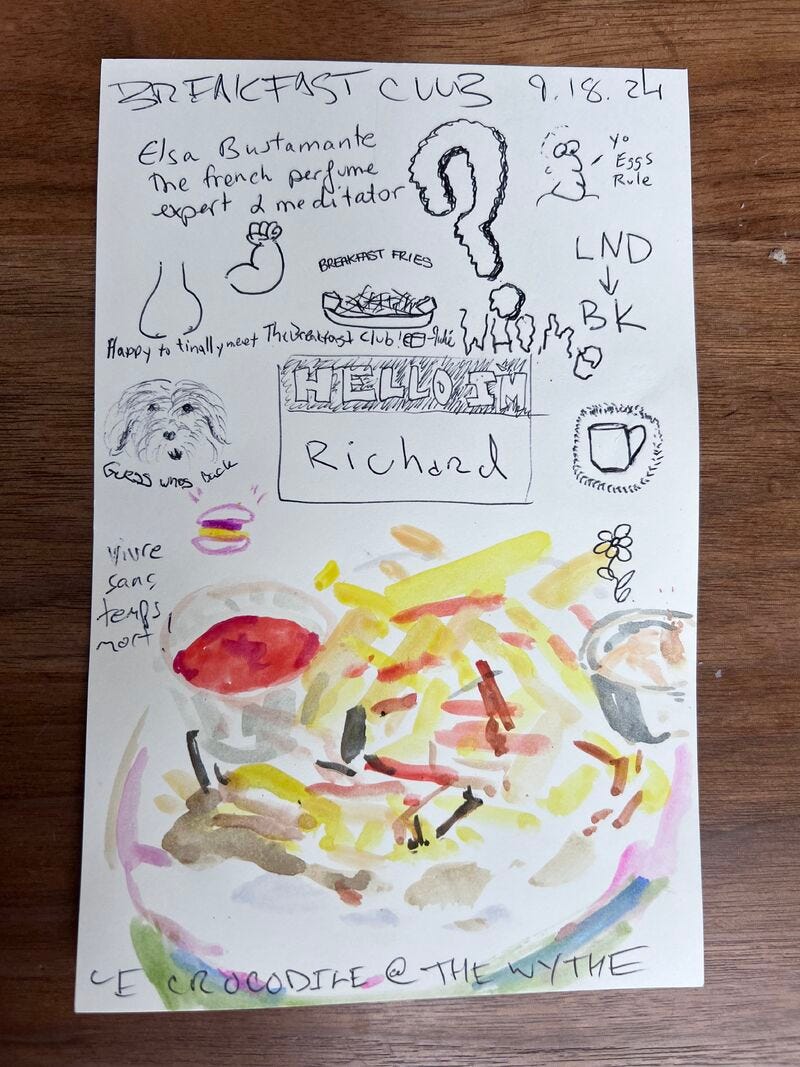 BREAKFAST CLUB 9.18.24
Elsa Bustamante
The french perfume
expert & meditator
Yo
Eggs
Rule
LND
BK
BREAKFAST FRIES
Happy to finally meet The Breakfast Club! -Julie
WHOM
HELLO I'M
Richard
Guess whos back
vivre
sans
temps
mort!
LE CROCODILE @ THE WYTHE